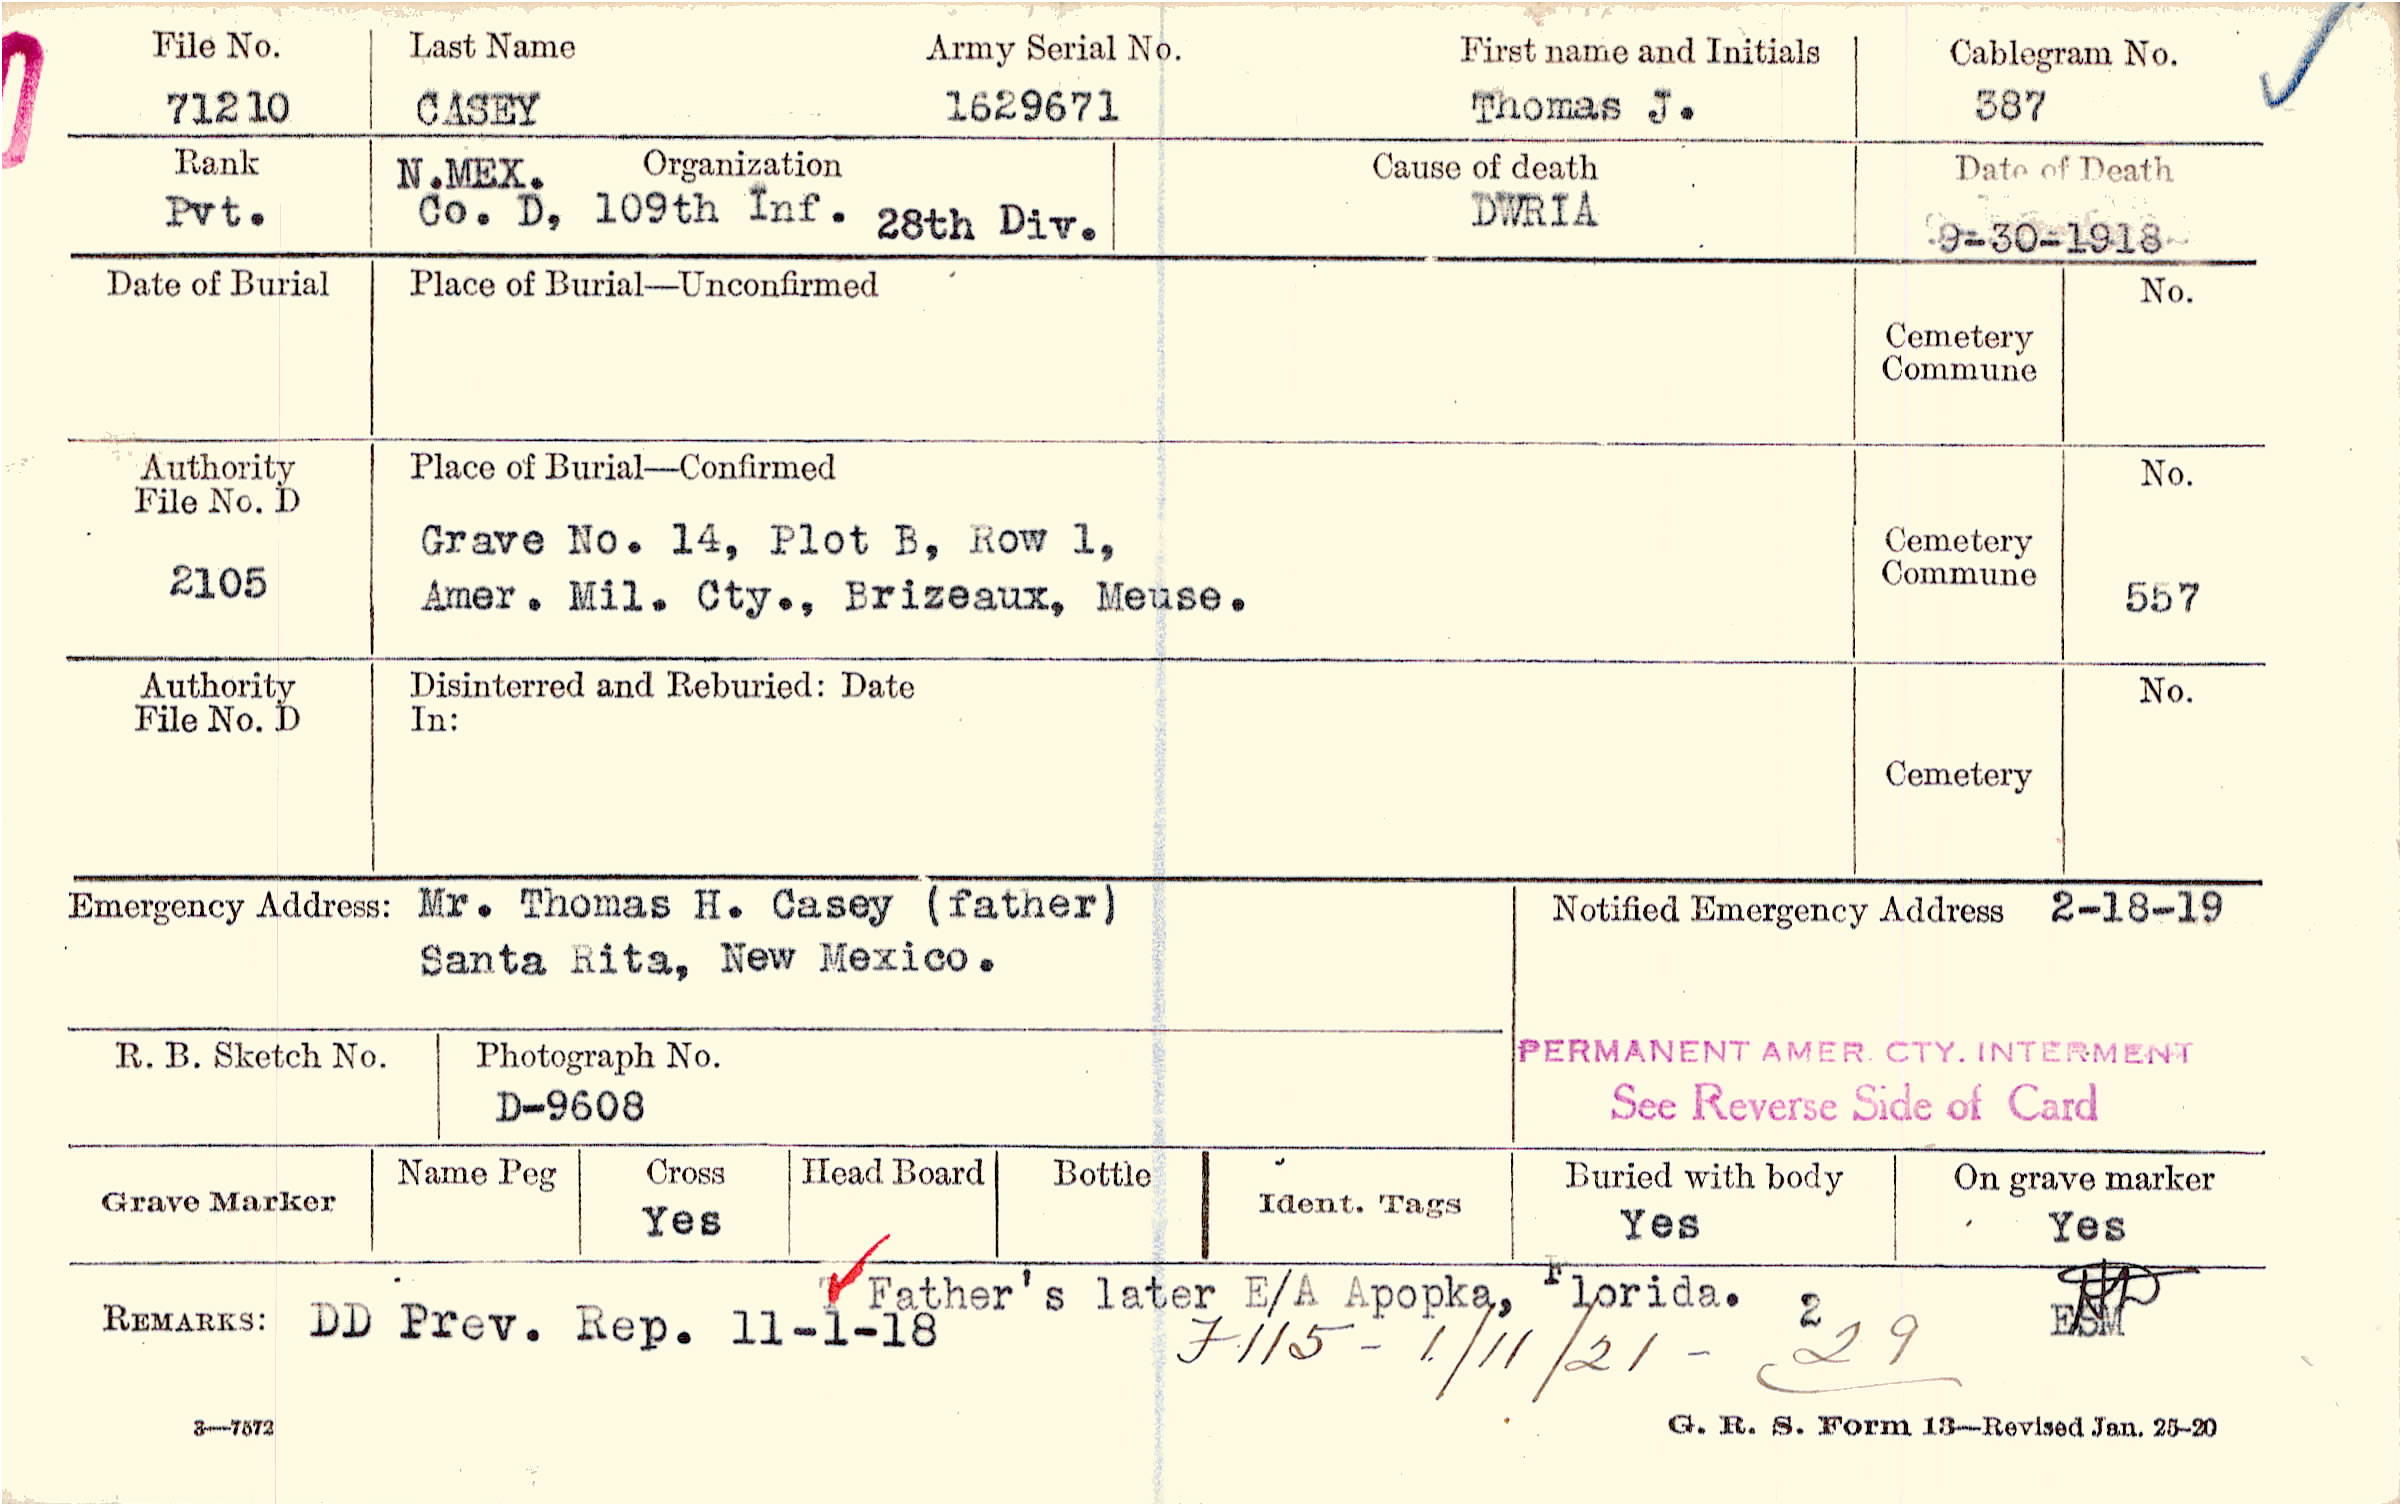 File No. Last Name Army Serial No. First name and Initials Cablegram No.
71210 CASEY 1629671 Thomas J. 387
Rank N.MEX. Organization Cause of death Date of Death
Pvt. Co. D, 109th Inf. 28th Div. DWRIA 9-30-1918
Date of Burial Place of Burial—Unconfirmed No.
Cemetery
Commune
Authority Place of Burial—Confirmed No.
File No. D
Grave No. 14, Plot B, Row 1, Cemetery
2105 Amer. Mil. Cty., Brizeaux, Meuse. Commune 557
Authority Disinterred and Reburied: Date No.
File No. D In:
Cemetery
Emergency Address: Mr. Thomas H. Casey (father) Notified Emergency Address 2-18-19
Santa Rita, New Mexico.
R. B. Sketch No. Photograph No. PERMANENT AMER. CTY. INTERMENT
D-9608 See Reverse Side of Card
Grave Marker Name Peg Cross Head Board Bottle Ident. Tags Buried with body On grave marker
Yes Yes Yes
Father's later E/A Apopka, Florida. 2
REMARKS: DD Prev. Rep. 11-1-18 ESM
F115 - 1/11/21 - 29
3—7572 G. R. S. Form 13—Revised Jan. 25-20